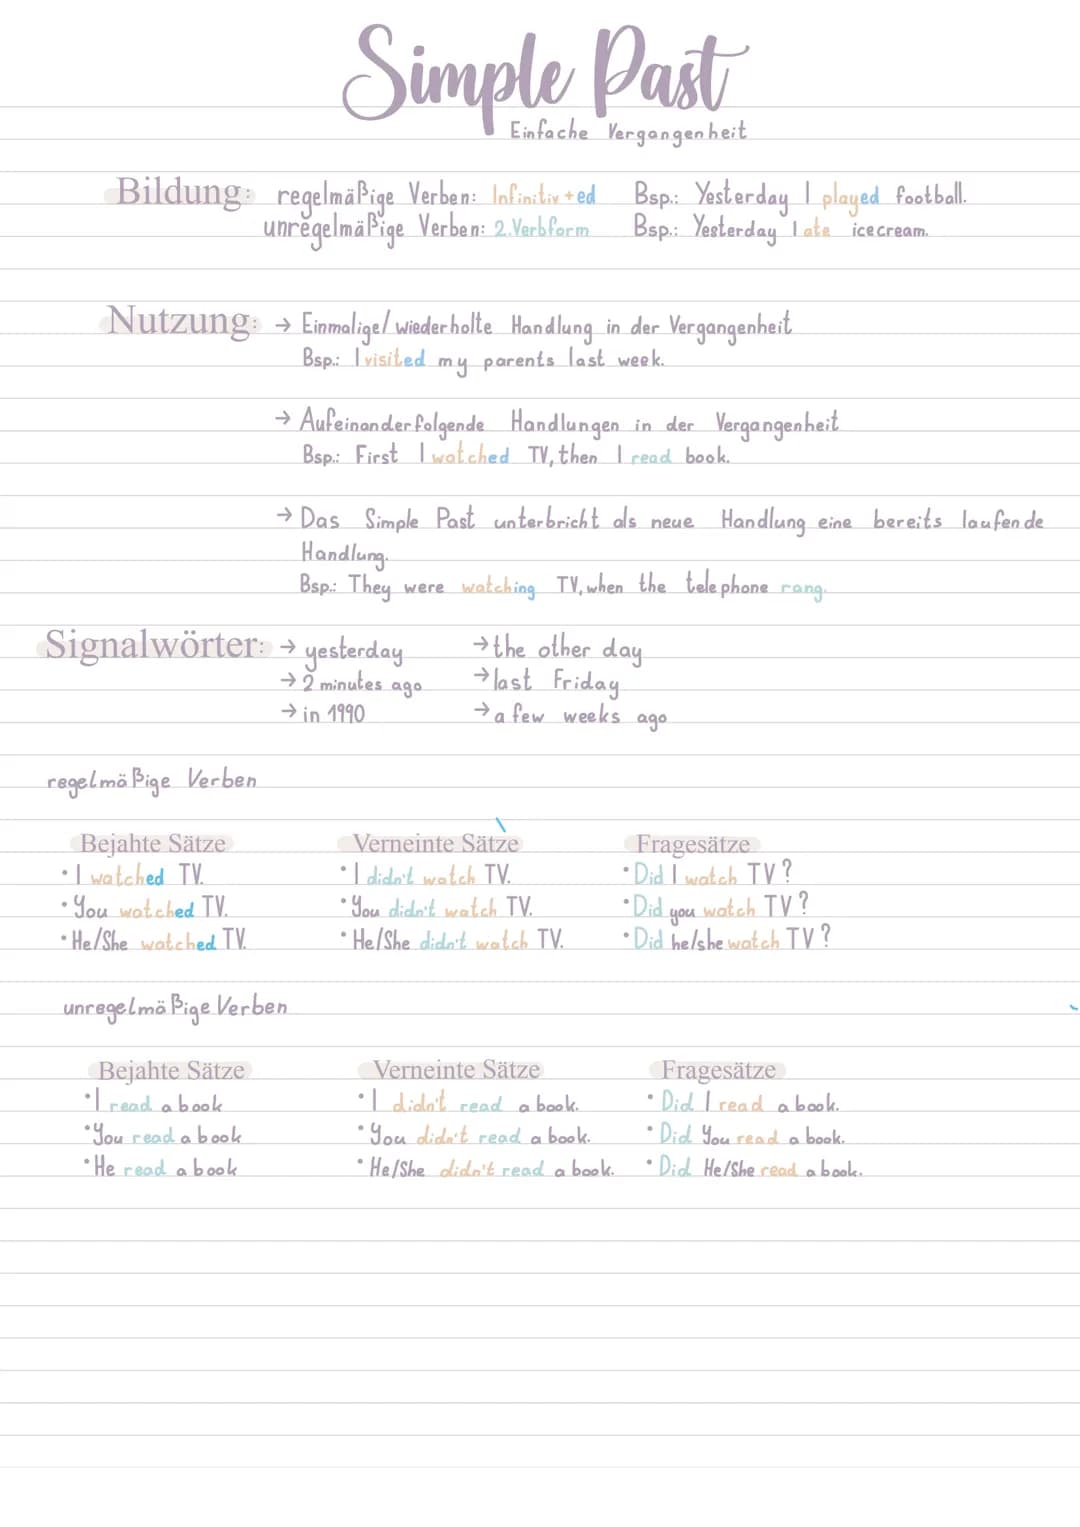 Simple Past
Einfache Vergangenheit
Bildung: regelmäßige Verben: Infinitiv + ed Bsp.: Yesterday I played football.
unregelmäßige Verben: 2. Verbform Bsp.: Yesterday I ate icecream.
Nutzung: → Einmalige/ wiederholte Handlung in der Vergangenheit
Bsp.: I visited my parents last week.
→ Aufeinanderfolgende Handlungen in der Vergangenheit
Bsp.: First I watched TV, then I read book.
→ Das Simple Past unterbricht als neue Handlung eine bereits laufende
Handlung.
Bsp.: They were watching TV, when the telephone rang.
Signalwörter: → yesterday → the other day
→ 2 minutes ago → last Friday
→ in 1990 → a few weeks ago
regelmäßige Verben
Bejahte Sätze Verneinte Sätze Fragesätze
• I watched TV. • I didn't watch TV. • Did I watch TV?
• You watched TV. • You didn't watch TV. • Did you watch TV?
• He/She watched TV. • He/She didn't watch TV. • Did he/she watch TV?
unregelmäßige Verben
Bejahte Sätze Verneinte Sätze Fragesätze
• I read a book • I didn't read a book. • Did I read a book.
• You read a book • You didn't read a book. • Did You read a book.
• He read a book • He/She didn't read a book. • Did He/She read a book.